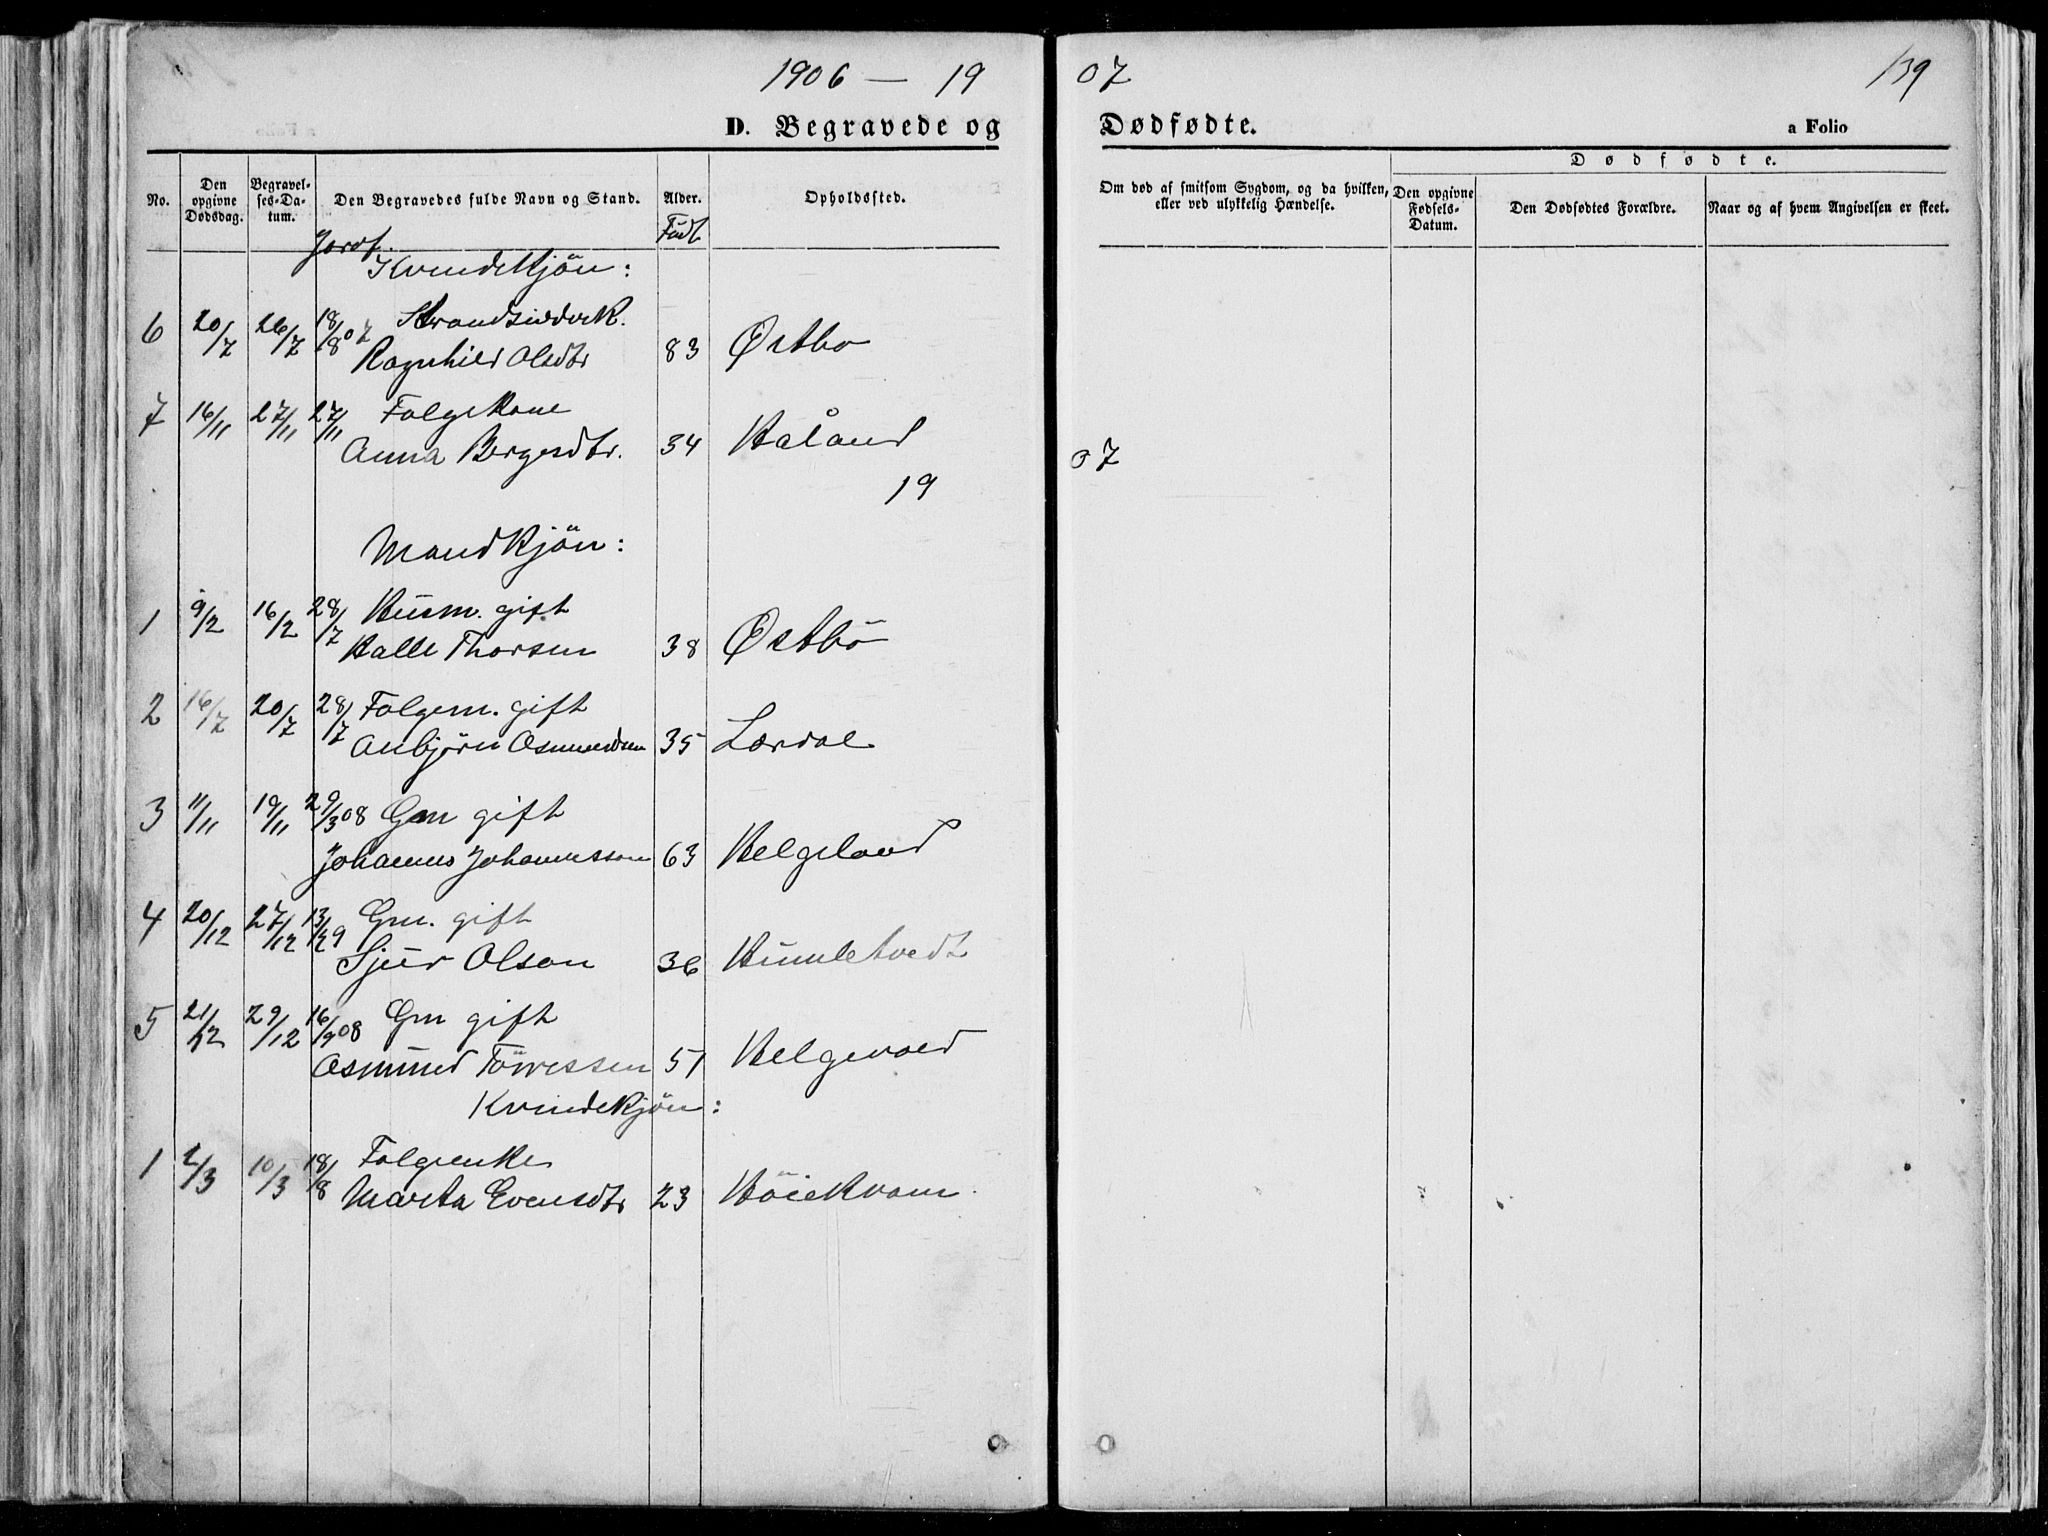 1906 — 19 07 139
D. Begravede og Dødfødte. a Folio
No.
Den opgivne Dødsdag.
Begravelses-Datum.
Den Begravedes fulde Navn og Stand.
Alder.
Opholdssted.
Om død af smitsom Sygdom, og da hvilken, eller ved ulykkelig Hændelse.
Dødfødte.
Den opgivne Fødsels-Datum.
Den Dødfødtes Forældre.
Naar og af hvem Angivelsen er skeet.
Jordf. Født
Kvindekjön:
6 20/7 26/7 18/8 07
Ragnhild Olsdtr 83 Østbø
7 16/11 27/11 27/11 Folgekone
Anna Bergesdtr. 34 Håland
19 07
Mandkjön:
1 9/2 16/2 28/7 Husm. gift
Halle Thorsen 38 Østbö
2 16/7 20/7 28/7 Folgem. gift
Anbjörn Osmundsen 35 Lordal
3 11/11 19/11 29/3 08 Gm gift
Johannes Johannesson 63 Helgeland
4 20/12 27/12 13/12 9 Gm. gift
Sjur Olson 36 Humletvedt
5 21/12 29/12 16/9 08 Gm gift
Osmund Törressen 51 Helgevold
Kvindekjön:
1 2/3 10/3 18/8 Folgeenke
Marta Evensdtr 23 Höiekvam.